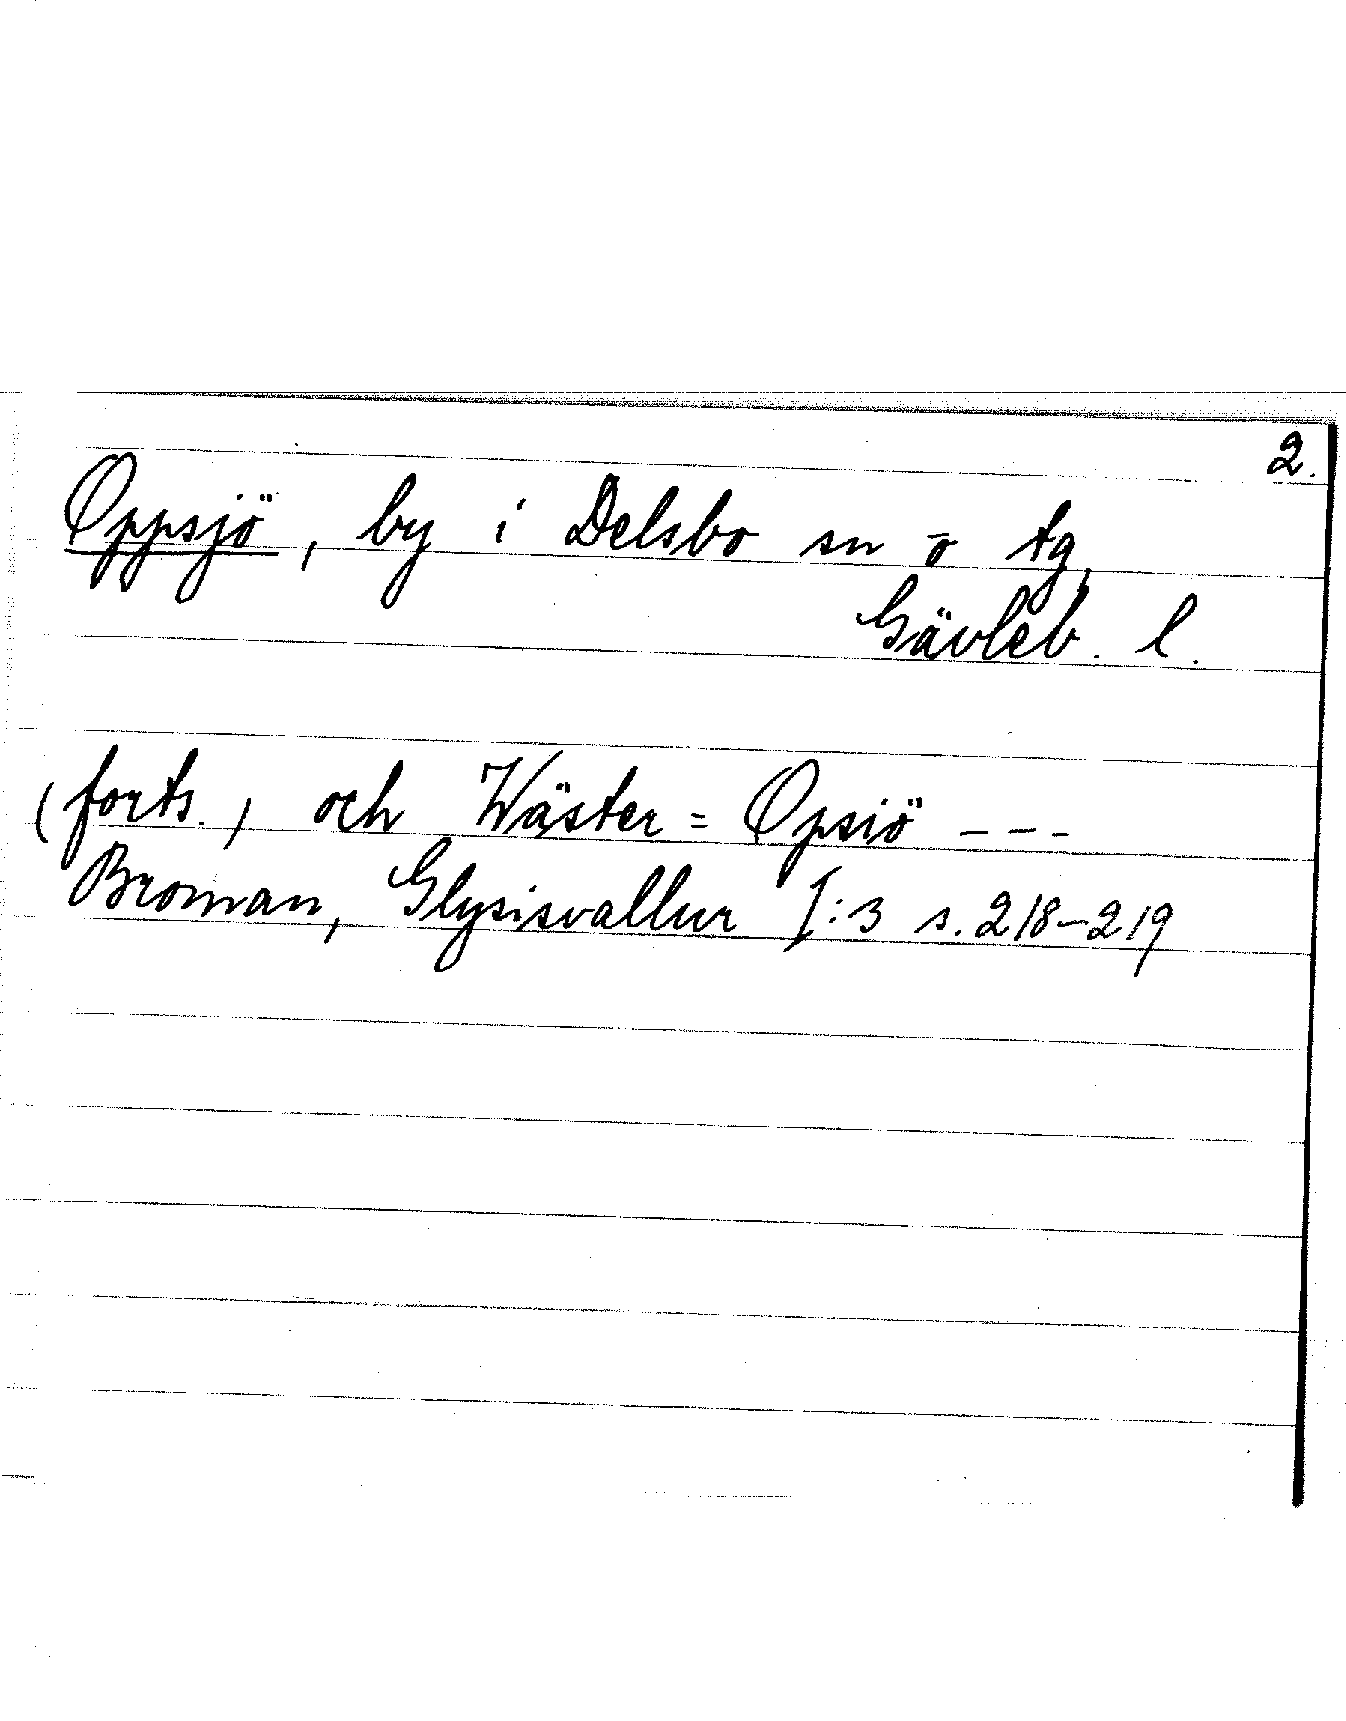 2.
Oppsjö, by i Delsbo sn o tg,
Gävleb. l.
(forts.) och Wäster = Opsiö - - -
Broman, Glysisvallur I:3 s. 218-219